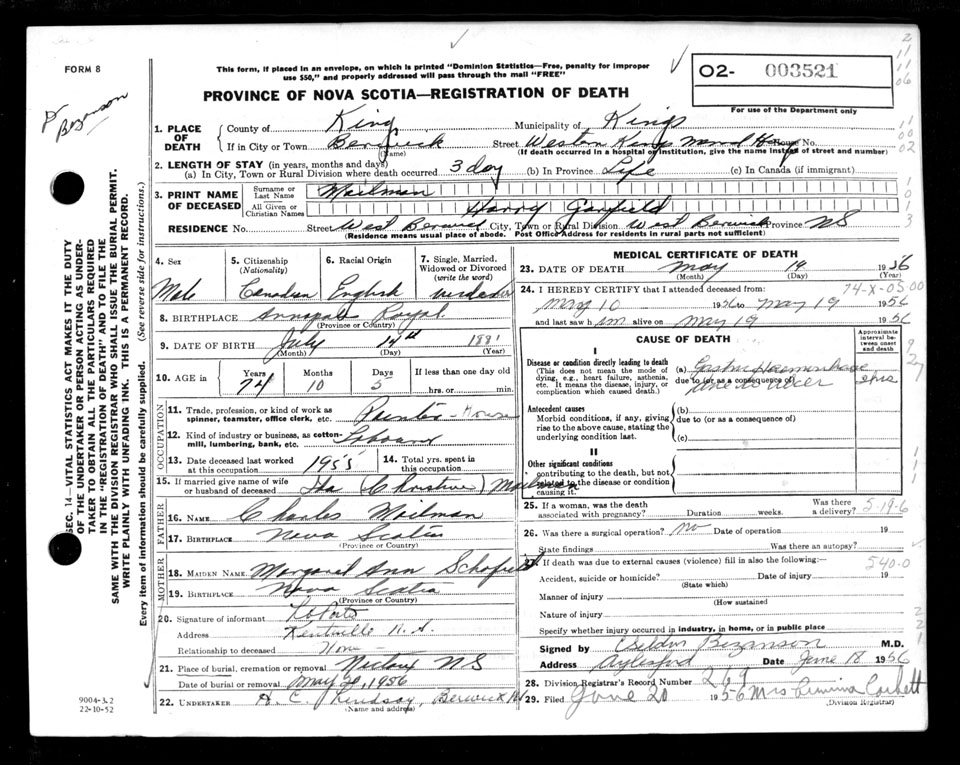 FORM 8
This form, if placed in an envelope, on which is printed "Dominion Statistics—Free, penalty for improper
use $50," and properly addressed will pass through the mail "FREE"
PROVINCE OF NOVA SCOTIA—REGISTRATION OF DEATH
O2- 003521
For use of the Department only
Bezanson
1. PLACE OF DEATH
County of King Municipality of Kings
If in City or Town Berwick Street Western Kings Mem'l House No.
(Name) (If death occurred in a hospital or institution, give the name instead of street and number)
2. LENGTH OF STAY (in years, months and days)
(a) In City, Town or Rural Division where death occurred 3 day (b) In Province Life (c) In Canada (if immigrant)
3. PRINT NAME OF DECEASED
Surname or Last Name Mailman
All Given or Christian Names Harry Garfield
RESIDENCE No. Street West Berwick City, Town or Rural Division West Berwick Province NS
(Residence means usual place of abode. Post Office Address for residents in rural parts not sufficient)
4. Sex Male
5. Citizenship (Nationality) Canadian
6. Racial Origin English
7. Single, Married, Widowed or Divorced (write the word) widower
8. BIRTHPLACE Annapolis Royal
(Province or Country)
9. DATE OF BIRTH July 14th 1881
(Month) (Day) (Year)
10. AGE in Years 74 Months 10 Days 5 If less than one day
hrs. or min.
OCCUPATION
11. Trade, profession, or kind of work as
spinner, teamster, office clerk, etc. Painter - House
12. Kind of industry or business, as cotton-
mill, lumbering, bank, etc.
13. Date deceased last worked
at this occupation 1955
14. Total yrs. spent in
this occupation
15. If married give name of wife
or husband of deceased Ida (Christine) Mailman
FATHER
16. NAME Charles Mailman
17. BIRTHPLACE Nova Scotia
(Province or Country)
MOTHER
18. MAIDEN NAME Margaret Ann Schofield
19. BIRTHPLACE Nova Scotia
(Province or Country)
20. Signature of informant
Address Kentville N.S.
Relationship to deceased None
21. Place of burial, cremation or removal Nictaux NS
Date of burial or removal May 20, 1956
22. UNDERTAKER H. C. Lindsay, Berwick NS
(Name and address)
MEDICAL CERTIFICATE OF DEATH
23. DATE OF DEATH May 19 1956
(Month) (Day) (Year)
24. I HEREBY CERTIFY that I attended deceased from: 74-X-0500
May 10 1956 to May 19 1956
and last saw him alive on May 19 1956
CAUSE OF DEATH
Approximate interval between onset and death
I
Disease or condition directly leading to death
(This does not mean the mode of
dying, e.g., heart failure, asthenia,
etc. It means the disease, injury, or
complication which caused death.)
(a) Gastric Haemorrhage
due to (or as a consequence of) ulcer
Antecedent causes
Morbid conditions, if any, giving
rise to the above cause, stating the
underlying condition last.
(b)
due to (or as a consequence of)
(c)
II
Other significant conditions
contributing to the death, but not
related to the disease or condition
causing it.
25. If a woman, was the death
associated with pregnancy? Duration weeks. Was there a delivery? 5-19-6
26. Was there a surgical operation? No Date of operation 19
State findings Was there an autopsy?
27. If death was due to external causes (violence) fill in also the following: 540.0
Accident, suicide or homicide? Date of injury 19
(State which)
Manner of injury
(How sustained)
Nature of injury
Specify whether injury occurred in industry, in home, or in public place
Signed by Bezanson M.D.
Address Aylesford Date June 18 1956
28. Division Registrar's Record Number 269
29. Filed June 20 1956 Mrs Corbett
(Division Registrar)
SEC. 14—VITAL STATISTICS ACT MAKES IT THE DUTY
OF THE UNDERTAKER OR PERSON ACTING AS UNDER-
TAKER TO OBTAIN ALL THE PARTICULARS REQUIRED
IN THE "REGISTRATION OF DEATH" AND TO FILE THE
SAME WITH THE DIVISION REGISTRAR WHO SHALL ISSUE THE BURIAL PERMIT.
WRITE PLAINLY WITH UNFADING INK. THIS IS A PERMANENT RECORD.
Every item of information should be carefully supplied. (See reverse side for instructions.)
9004-3.2
22-10-52